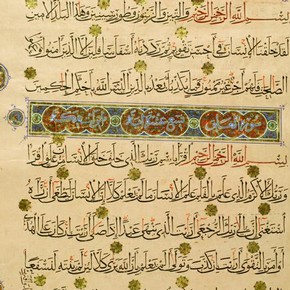 بسم الله الرحمن الرحيم والتين والزيتون وطور سينين وهذا البلد الامين
لقد خلقنا الانسان في احسن تقويم ثم رددناه اسفل سافلين الا الذين امنوا وعملوا
الصالحات فلهم اجر غير ممنون فما يكذبك بعد بالدين اليس الله باحكم الحاكمين
سورة العلق
بسم الله الرحمن الرحيم اقرا باسم ربك الذي خلق خلق الانسان من علق اقرا
وربك الاكرم الذي علم بالقلم علم الانسان ما لم يعلم كلا ان الانسان ليطغى ان رآه
استغنى ان الى ربك الرجعى ارايت الذي ينهى عبدا اذا صلى ارايت ان كان على الهدى
او امر بالتقوى ارايت ان كذب وتولى الم يعلم بان الله يرى كلا لئن لم ينته لنسفعا